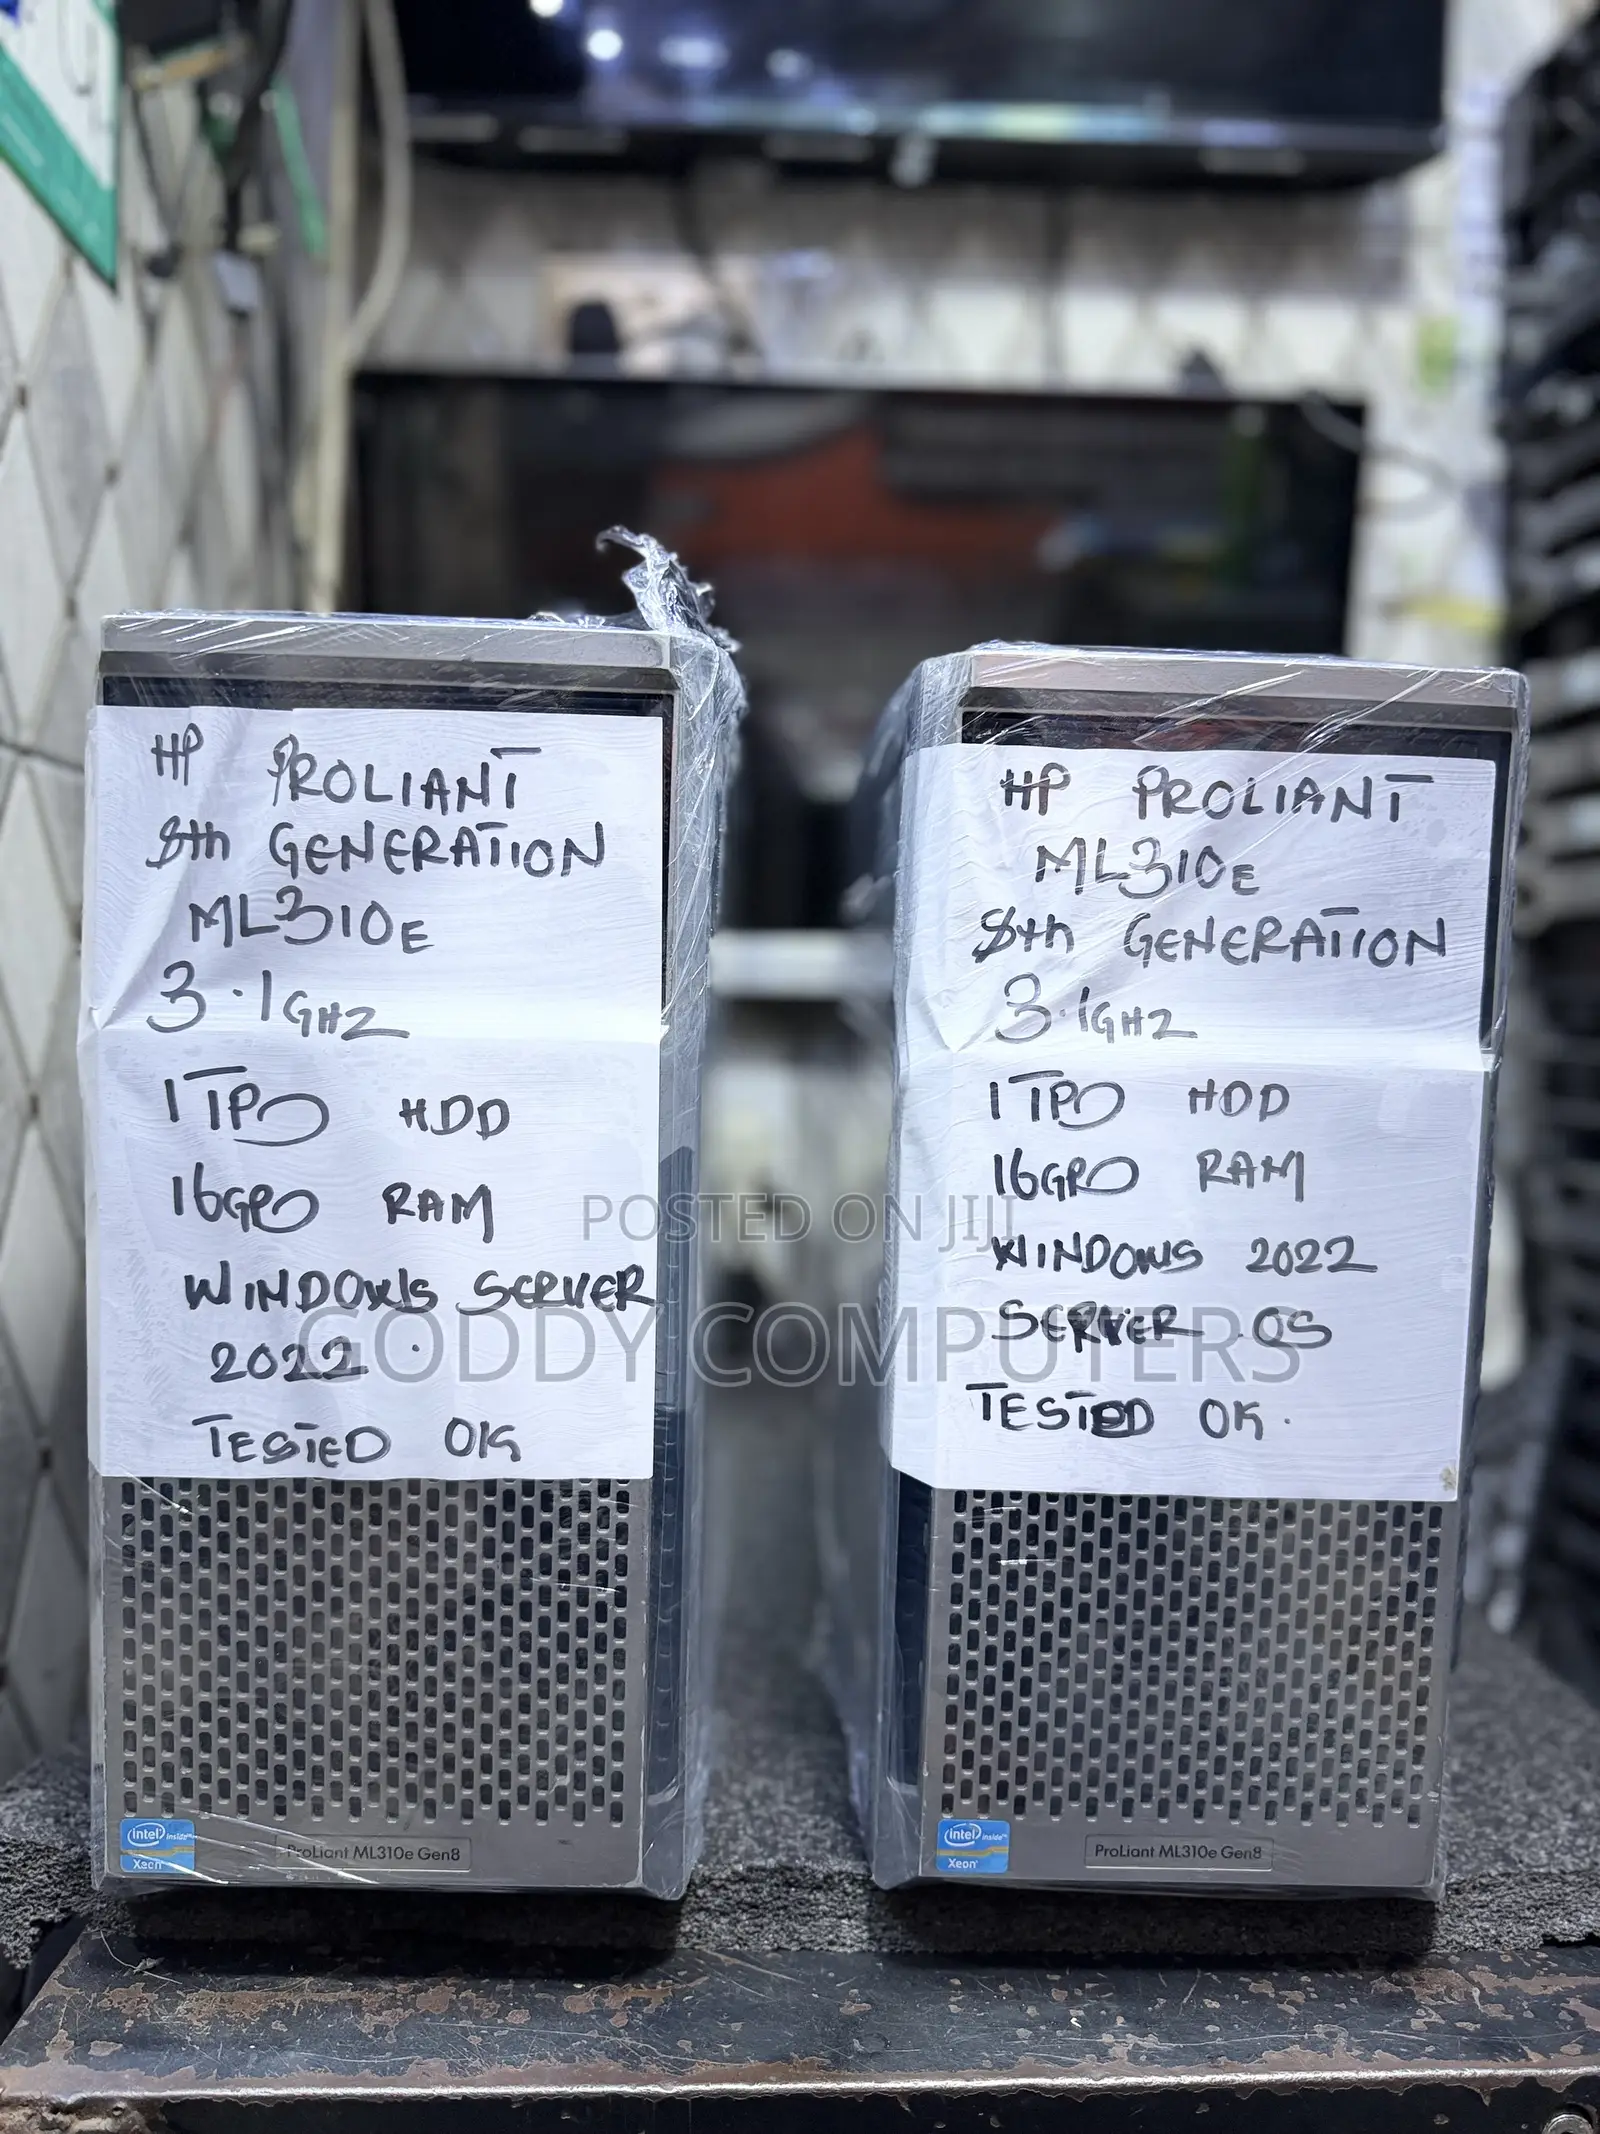 HP PROLIANT
8th GENERATION
ML310E
3.1GHZ
1TB HDD
16GB RAM
WINDOWS SERVER
2022.
TESTED OK
intel inside™
Xeon®
ProLiant ML310e Gen8
HP PROLIANT
ML310E
8th GENERATION
3.1GHZ
1TB HDD
16GB RAM
WINDOWS 2022
SERVER OS
TESTED OK.
intel inside™
Xeon®
ProLiant ML310e Gen8
POSTED ON JIJI
GODDY COMPUTERS